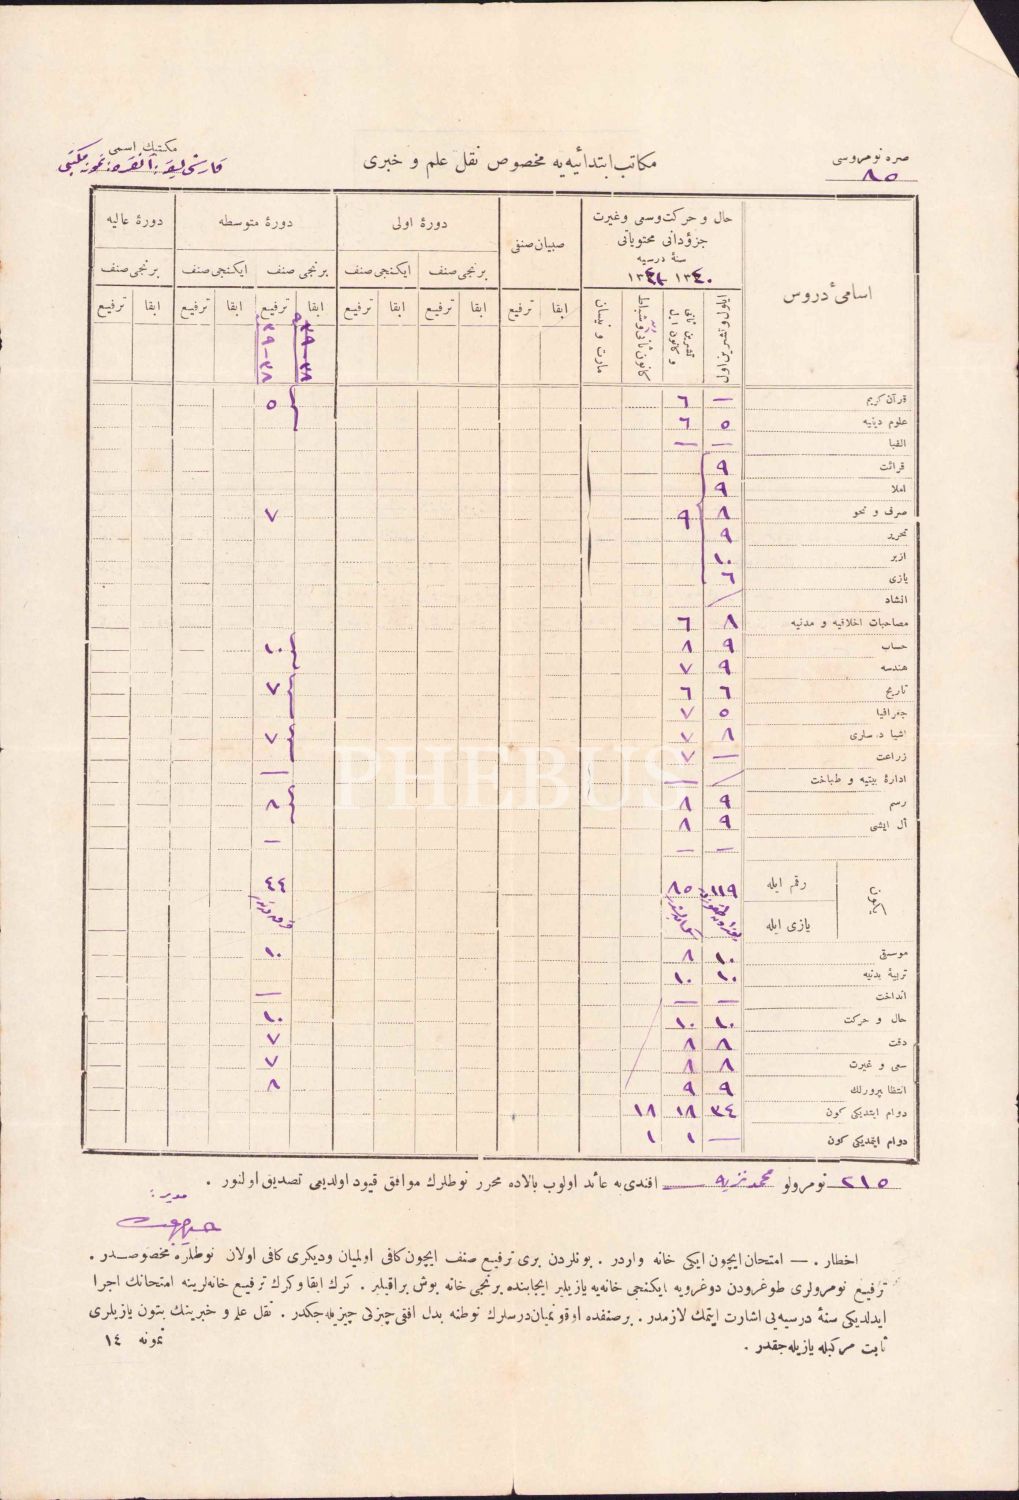 صره نومروسی
٨٥
مكاتب ابتدائیه‌یه مخصوص نقل علم و خبری
مكتبك اسمی
اسامیٔ دروس
حال و حركت وسعی وغیرت
جزؤدانی محتویاتی
سنهٔ درسیه
١٣٤٠ ١٣٤١
صبیان صنفی
دورهٔ اولی
دورهٔ متوسطه
دورهٔ عالیه
برنجی صنف ایكنجی صنف برنجی صنف ایكنجی صنف برنجی صنف
ایلول و تشرین اول
تشرین ثانی و كانون اول
كانون ثانی و شباط
مارت و نیسان
ابقا ترفیع ابقا ترفیع ابقا ترفیع ابقا ترفیع ابقا ترفیع ابقا ترفیع
٣٨-٣٩
٣٨-٣٩
قرآن كریم — ٦ ٥
علوم دینیه ٥ ٦
الفبا — —
قرائت ٩
املا ٩
صرف و نحو ٨ ٩ ٧
تحریر ٩
ازبر ١٠
یازی ٦
انشاد
مصاحبات اخلاقیه و مدنیه ٨ ٦
حساب ٩ ٨ ١٠
هندسه ٩ ٧
تاریخ ٦ ٦ ٧
جغرافیا ٥ ٧
اشیا درسلری ٨ ٧ ٧
زراعت — ٧
ادارهٔ بیتیه و طباخت — —
رسم ٩ ٨ ٨
ال ایشی ٩ ٨
— — —
رقم ایله ١١٩ ٨٥ ٤٤
یازی ایله
موسیقی ١٠ ٨ ١٠
تربیهٔ بدنیه ١٠ ١٠
انداخت — — —
حال و حركت ١٠ ١٠ ١٠
دقت ٨ ٨ ٧
سعی و غیرت ٨ ٨ ٧
انتظامپرورلك ٩ ٩ ٨
دوام ایتدیكی كون ٣٤ ١٨ ١٨
دوام ایتمدیكی كون — ١ ١
PHEBUS
٢١٥ نومرولو محمد نزیه افندی‌یه عائد اولوب بالاده محرر نوطلرك موافق قیود اولدیغی تصدیق اولنور .
مدیر :
اخطار . — امتحان ایچون ایكی خانه واردر . بونلردن بری ترفیع صنف ایچون كافی اولمیان ودیكری كافی اولان نوطلره مخصوصدر .
ترفیع نومرولری طوغرودن دوغرویه ایكنجی خانه‌یه یازیلیر ایجابنده برنجی خانه بوش براقیلیر . كرك ابقا وكرك ترفیع خانه‌لرینه امتحانك اجرا
ایدلدیكی سنهٔ درسیه‌یی اشارت ایتمك لازمدر . برصنفده اوقونمیان درسلرك نوطنه بدل افقی چیزكی چیزیله‌جكدر . نقل علم و خبرینك بتون یازیلری
ثابت مركبله یازیله‌جقدر .
نمونه ١٤